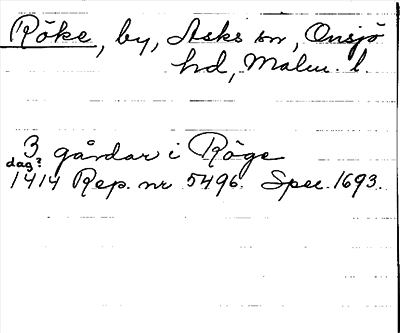 Röke, by, Asks sn, Onsjö
hd, Malm. l.
3 gårdar i Röge
dag?
1414 Rep. nr 5496. Spec. 1693.